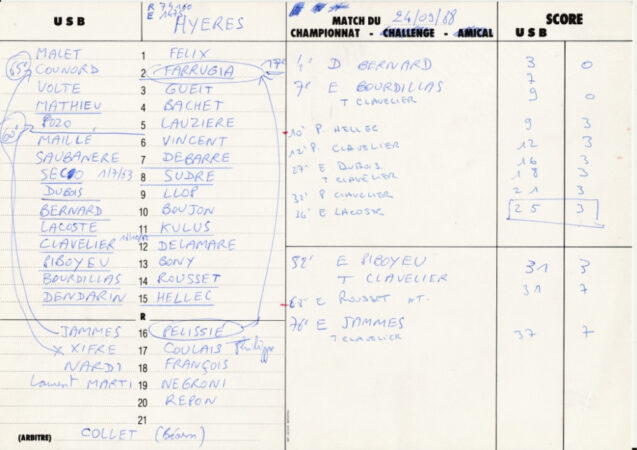 U S B R 74160 E 1475 HYERES
MALET 1 FELIX
65' COUNORD 2 FARRUGIA 17e
VOLTE 3 GUEIT
MATHIEU 4 BACHET
60' POZO 5 LAUZIERE
MAILLÉ 6 VINCENT
SAUBANERE 7 DEBARRE
8 SUDRE
DUBOIS 9 LLOP
BERNARD 10 BOUJON
LACOSTE 11 KULUS
CLAVELIER 12 DELAMARE
PIBOYEU 13 BONY
BOURDILLAS 14 ROUSSET
DENDARIN 15 HELLEC
R
JAMMES 16 PELISSIE
x XIFRE 17 COULAIS Philippe
NARDI 18 FRANÇOIS
Laurent MARTI 19 NEGRONI
20 REPON
21
(ARBITRE) COLLET (Béarn)
MATCH DU 24/09/88 SCORE
CHAMPIONNAT - CHALLENGE - AMICAL U S B
4' D BERNARD 3 0
7
7' E BOURDILLAS
T CLAVELIER 9 0
10' P. HELLEC 9 3
12' P. CLAVELIER 12 3
27' E DUBOIS 16 3
T CLAVELIER 18 3
32' P CLAVELIER 21 3
36' E LACOSTE 25 3
52' E PIBOYEU 31 3
T CLAVELIER
E ROUSSET NT. 31 7
76' E JAMMES
T CLAVELIER 37 7